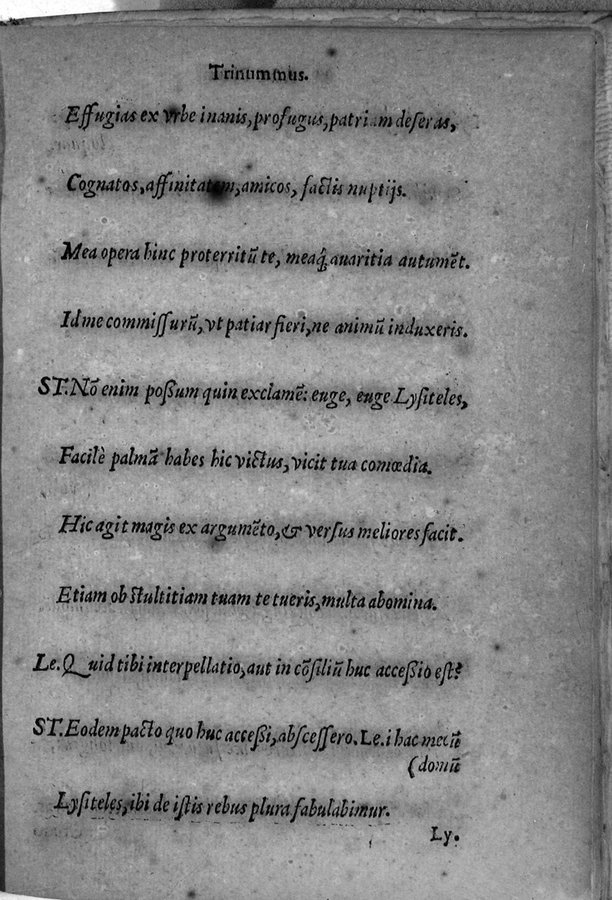 Trinummus.
Effugias ex vrbe inanis, profugus, patriam deseras,
Cognatos, affinitatem, amicos, factis nuptijs.
Mea opera hinc proterritũ te, meaq́; auaritia autumẽt.
Id me commissurũ, vt patiar fieri, ne animũ induxeris.
ST. Nõ enim possum quin exclamẽ: euge, euge Lysiteles,
Facilè palmã habes hic victus, vicit tua comœdia.
Hic agit magis ex argumẽto, & versus meliores facit.
Etiam ob stultitiam tuam te tueris, multa abomina.
Le. Quid tibi interpellatio, aut in cõsiliũ huc accessio est?
ST. Eodem pacto quo huc accessi, abscessero. Le. i hac mecũ
(domũ
Lysiteles, ibi de istis rebus plura fabulabimur.
Ly.